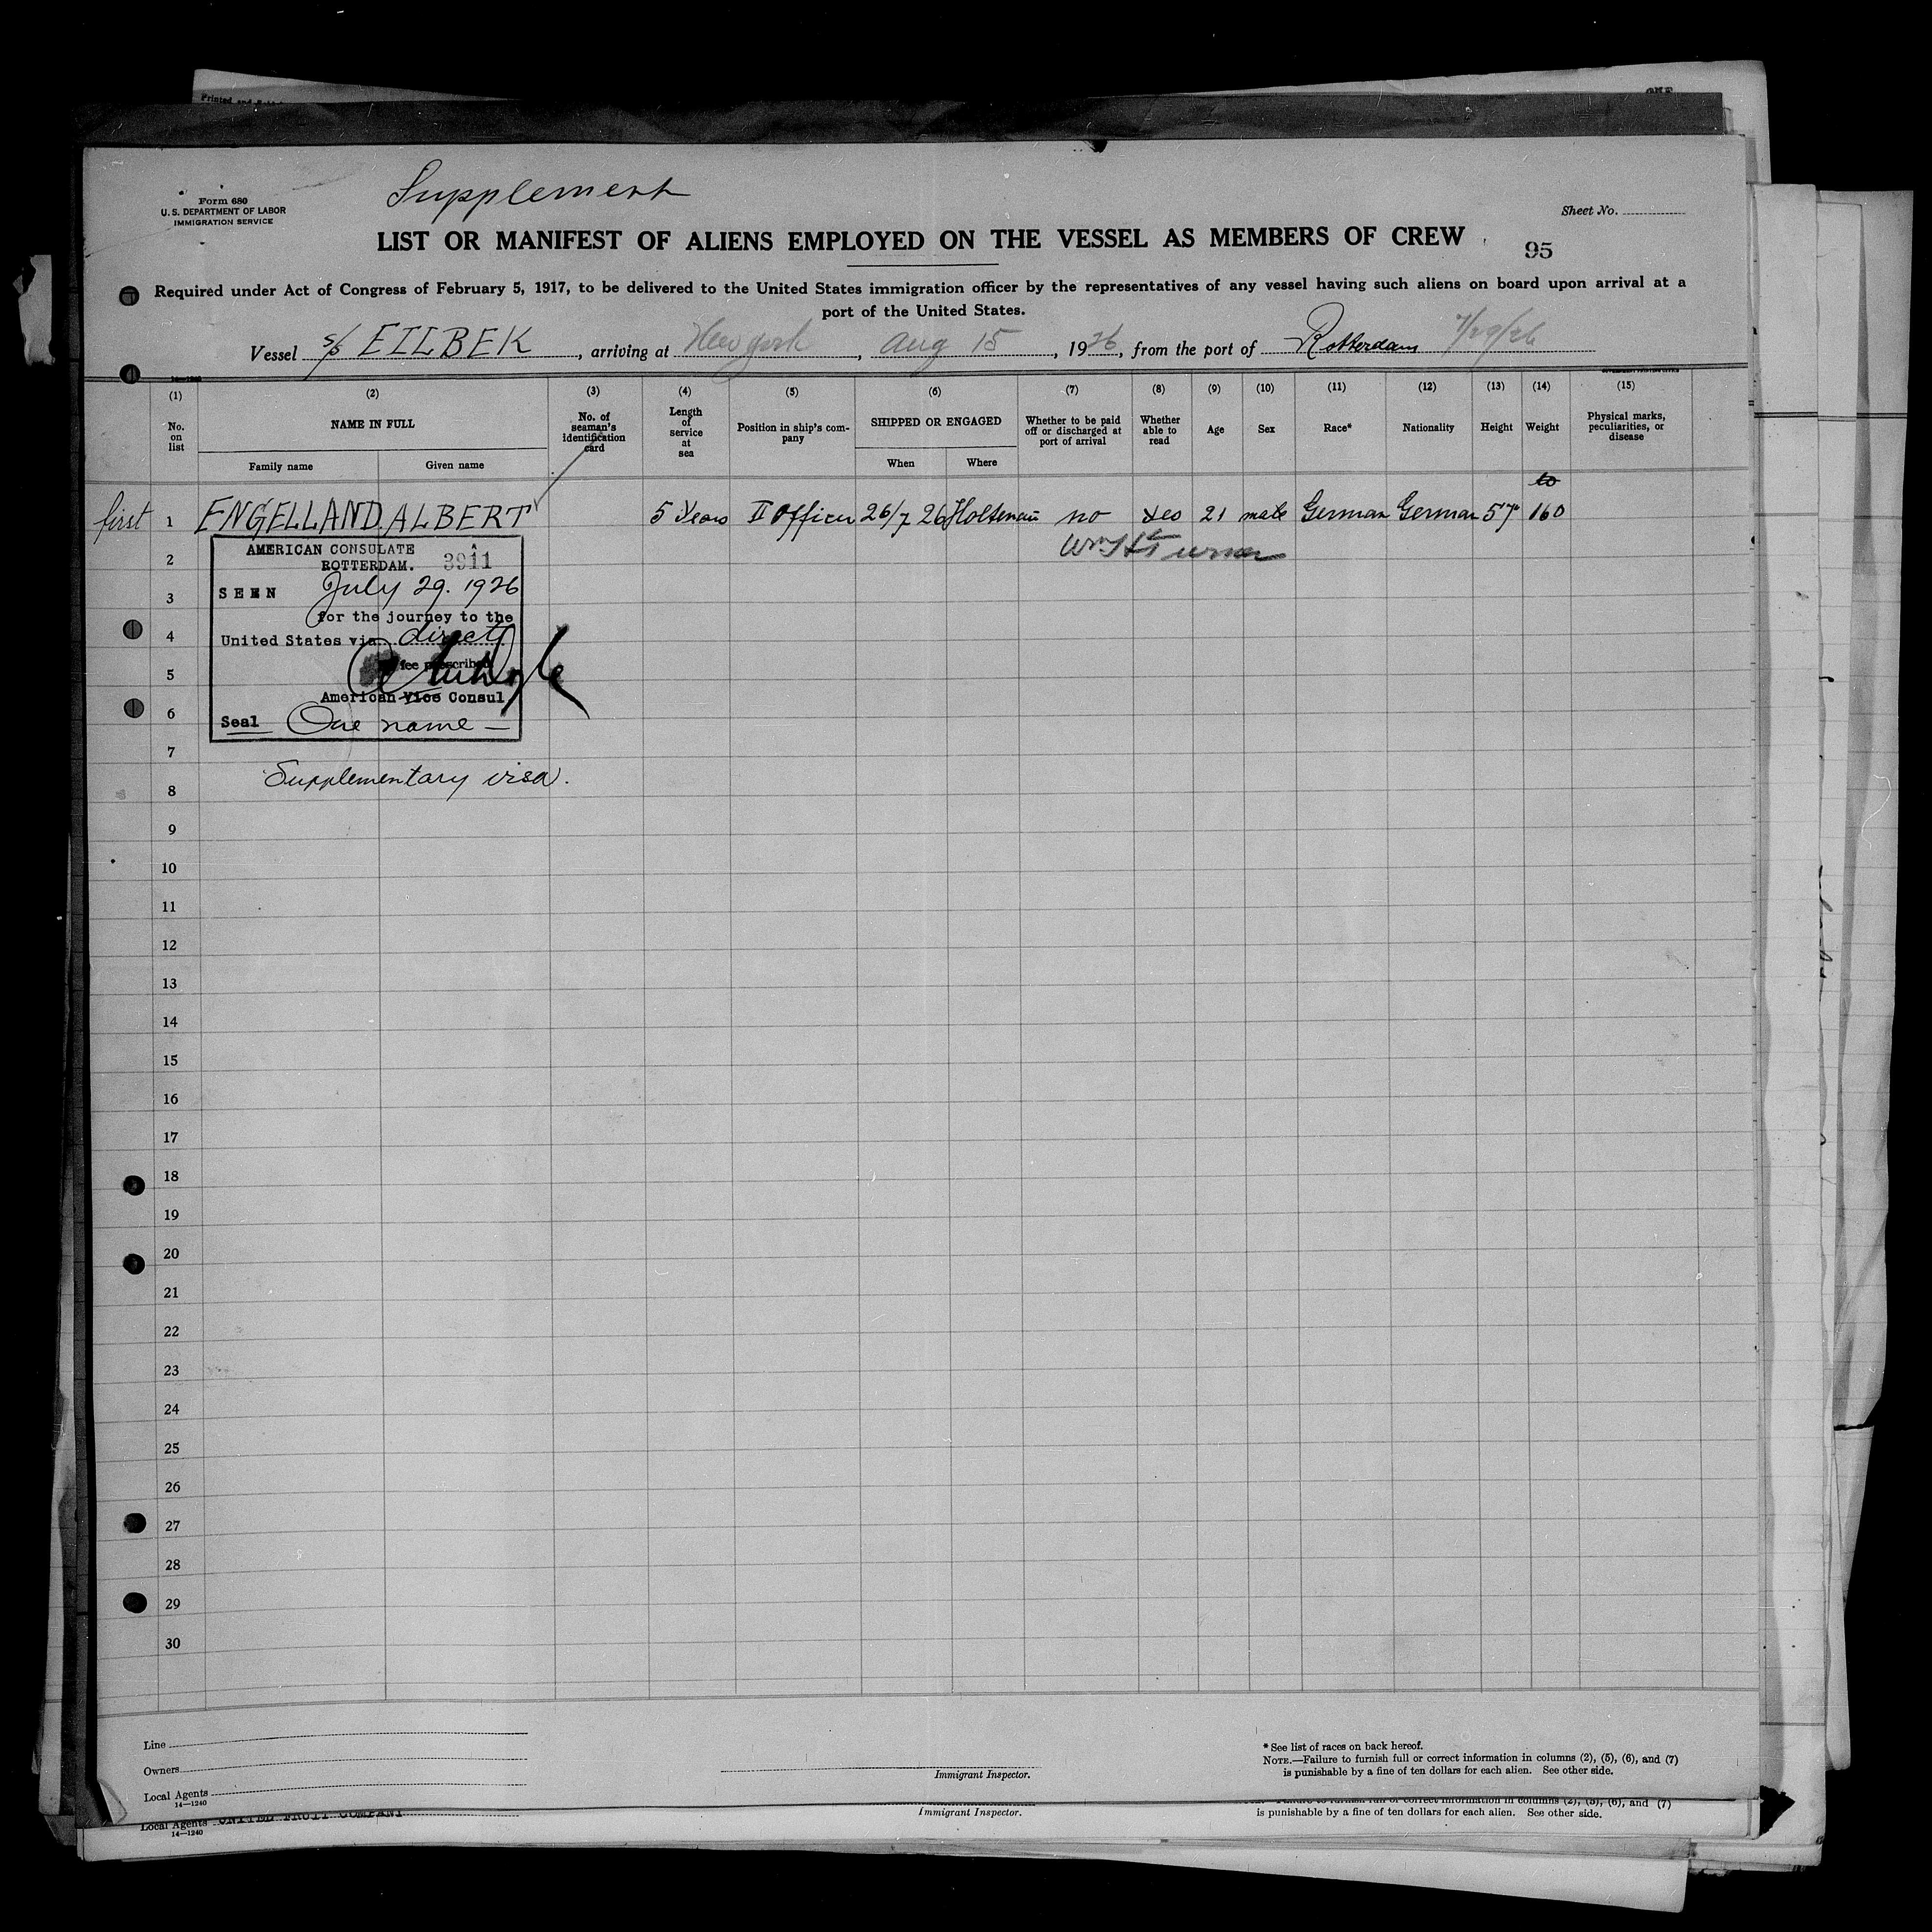 Printed and
ONE
Form 680
U. S. DEPARTMENT OF LABOR
IMMIGRATION SERVICE
Supplement
Sheet No.
LIST OR MANIFEST OF ALIENS EMPLOYED ON THE VESSEL AS MEMBERS OF CREW
95
Required under Act of Congress of February 5, 1917, to be delivered to the United States immigration officer by the representatives of any vessel having such aliens on board upon arrival at a
port of the United States.
Vessel s/s EILBEK, arriving at New York, Aug 15, 1926, from the port of Rotterdam 7/29/26
(1) (2) (3) (4) (5) (6) (7) (8) (9) (10) (11) (12) (13) (14) (15)
No. on list
NAME IN FULL
Family name
Given name
No. of seaman's identification card
Length of service at sea
Position in ship's company
SHIPPED OR ENGAGED
When
Where
Whether to be paid off or discharged at port of arrival
Whether able to read
Age
Sex
Race*
Nationality
Height
Weight
Physical marks, peculiarities, or disease
first 1 ENGELLAND ALBERT 5 Years II Officer 26/7 26 Holtenau no Yes 21 male German German 5'7" 160
AMERICAN CONSULATE
ROTTERDAM. 3911
SEEN July 29. 1926
for the journey to the
United States via direct
fee prescribed
American Vice Consul
Seal One name —
Supplementary visa.
2
3
4
5
6
7
8
9
10
11
12
13
14
15
16
17
18
19
20
21
22
23
24
25
26
27
28
29
30
Line
Owners
Local Agents
14—1240
Immigrant Inspector.
* See list of races on back hereof.
NOTE.—Failure to furnish full or correct information in columns (2), (5), (6), and (7)
is punishable by a fine of ten dollars for each alien. See other side.
Local Agents UNITED FRUIT COMPANY
14—1240
Immigrant Inspector.
Failure to furnish full or correct information in columns (2), (5), (6), and (7)
is punishable by a fine of ten dollars for each alien. See other side.